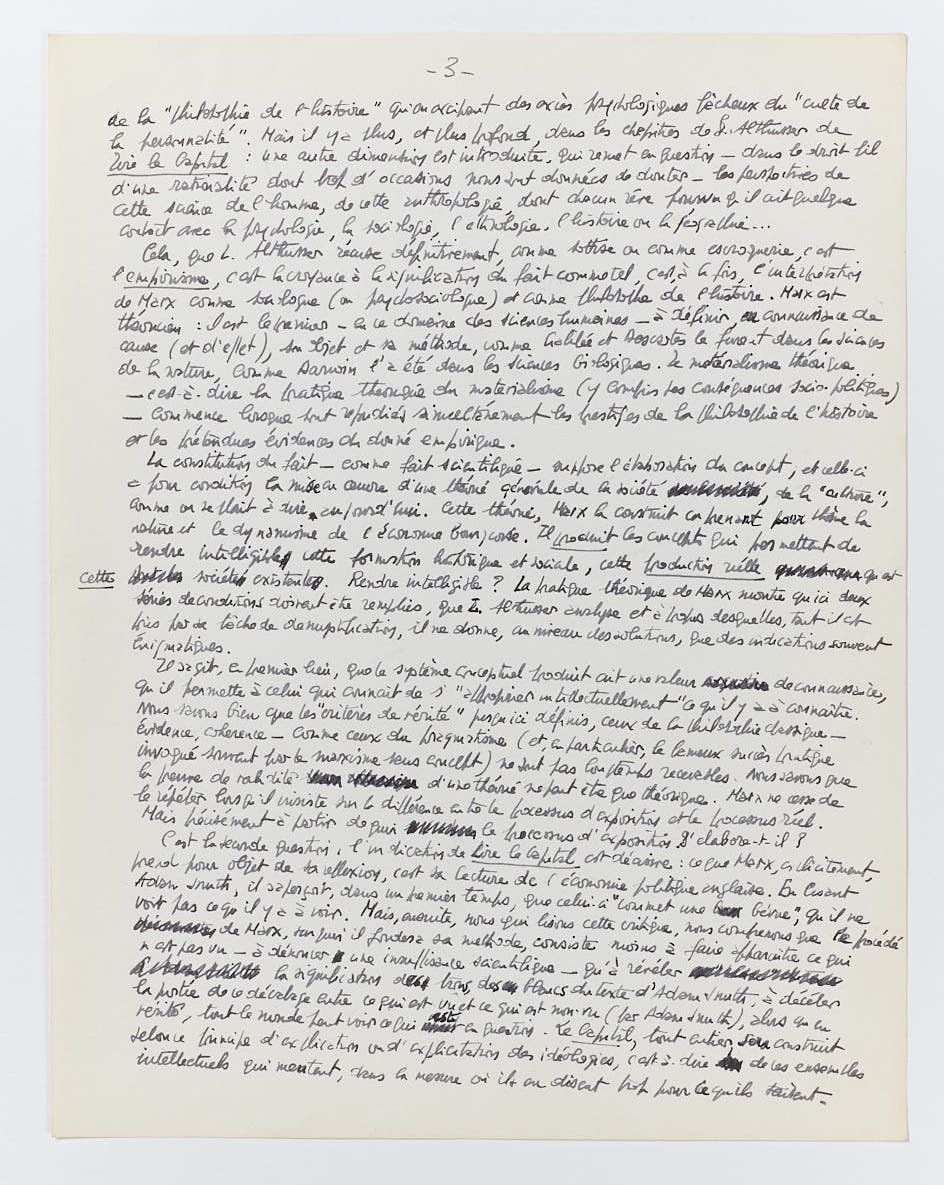 -3-
de la "Philosophie de l'histoire" qui anticipent des accès psychologiques fâcheux du "culte de
la personnalité". Mais il y a plus, et plus profond, dans les chapitres de L. Althusser de
Lire le Capital : une autre dimension est introduite, qui remet en question — dans le droit fil
d'une rationalité dont trop d'occasions nous sont données de douter — les perspectives de
cette science de l'homme, de cette anthropologie, dont chacun rêve pourvu qu'il ait quelque
contact avec la psychologie, la sociologie, l'ethnologie, l'histoire ou la géographie...
Cela, que L. Althusser récuse définitivement, comme sottise ou comme escroquerie, c'est
l'empirisme, c'est la croyance à la signification du fait comme tel, c'est, à la fois, l'interprétation
de Marx comme sociologue (ou psychosociologue) et comme philosophe de l'histoire. Marx est
théoricien : il est le premier — en ce domaine des sciences humaines — à définir en connaissance de
cause (et d'effet), son objet et sa méthode, comme Galilée et Descartes le firent dans les sciences
de la nature, comme Darwin l'a été dans les sciences biologiques. Le matérialisme théorique
— c'est-à-dire la pratique théorique du matérialisme (y compris ses conséquences socio-politiques)
— commence lorsque sont répudiés simultanément les prestiges de la Philosophie de l'histoire
et les prétendues évidences du donné empirique.
La constitution du fait — comme fait scientifique — suppose l'élaboration du concept, et celle-ci
a pour condition la mise en œuvre d'une théorie générale de la société, de la "culture",
comme on se plaît à dire aujourd'hui. Cette théorie, Marx la construit en prenant pour thème la
nature et le dynamisme de l'économie bourgeoise. Il produit les concepts qui permettent de
rendre intelligible cette formation historique et sociale, cette production réelle qu'est
Cette société existante. Rendre intelligible ? La pratique théorique de Marx montre qu'ici deux
séries de conditions doivent être remplies, que L. Althusser analyse et à propos desquelles, tant il est
pris par sa tâche de démystification, il ne donne, au niveau des solutions, que des indications souvent
énigmatiques.
Il s'agit, en premier lieu, que le système conceptuel produit ait une valeur de connaissance,
qu'il permette à celui qui connaît de s'"approprier intellectuellement" ce qu'il y a à connaître.
Nous savons bien que les "critères de vérité" jusqu'ici définis, ceux de la philosophie classique —
évidence, cohérence — comme ceux du pragmatisme (et, en particulier, le fameux succès pratique
invoqué souvent par le marxisme sans concept) ne sont pas longtemps recevables. Nous savons que
la preuve de validité d'une théorie ne peut être que théorique. Marx ne cesse de
le répéter lorsqu'il insiste sur la différence entre le processus d'exposition et le processus réel.
Mais justement à partir de quoi le processus d'exposition s'élabore-t-il ?
C'est la seconde question. L'indication de Lire le Capital est décisive : ce que Marx, explicitement,
prend pour objet de sa réflexion, c'est sa lecture de l'économie politique anglaise. En lisant
Adam Smith, il aperçoit, dans un premier temps, que celui-ci "commet une bévue", qu'il ne
voit pas ce qu'il y a à voir. Mais, ensuite, nous qui lisons cette critique, nous comprenons que le procédé
de Marx, sur quoi il fondera sa méthode, consiste moins à faire apparaître ce qui
n'est pas vu — à dénoncer une insuffisance scientifique — qu'à révéler
la signification des trous, des blancs du texte d'Adam Smith, à déceler
la portée de ce décalage entre ce qui est vu et ce qui est non-vu (par Adam Smith), alors qu'en
vérité, tout le monde peut voir ce qui est en question. Le Capital, tout entier, sera construit
selon ce principe d'explication ou d'explicitation des idéologies, c'est-à-dire de ces ensembles
intellectuels qui mentent, dans la mesure où ils en disent trop pour ce qu'ils taisent.